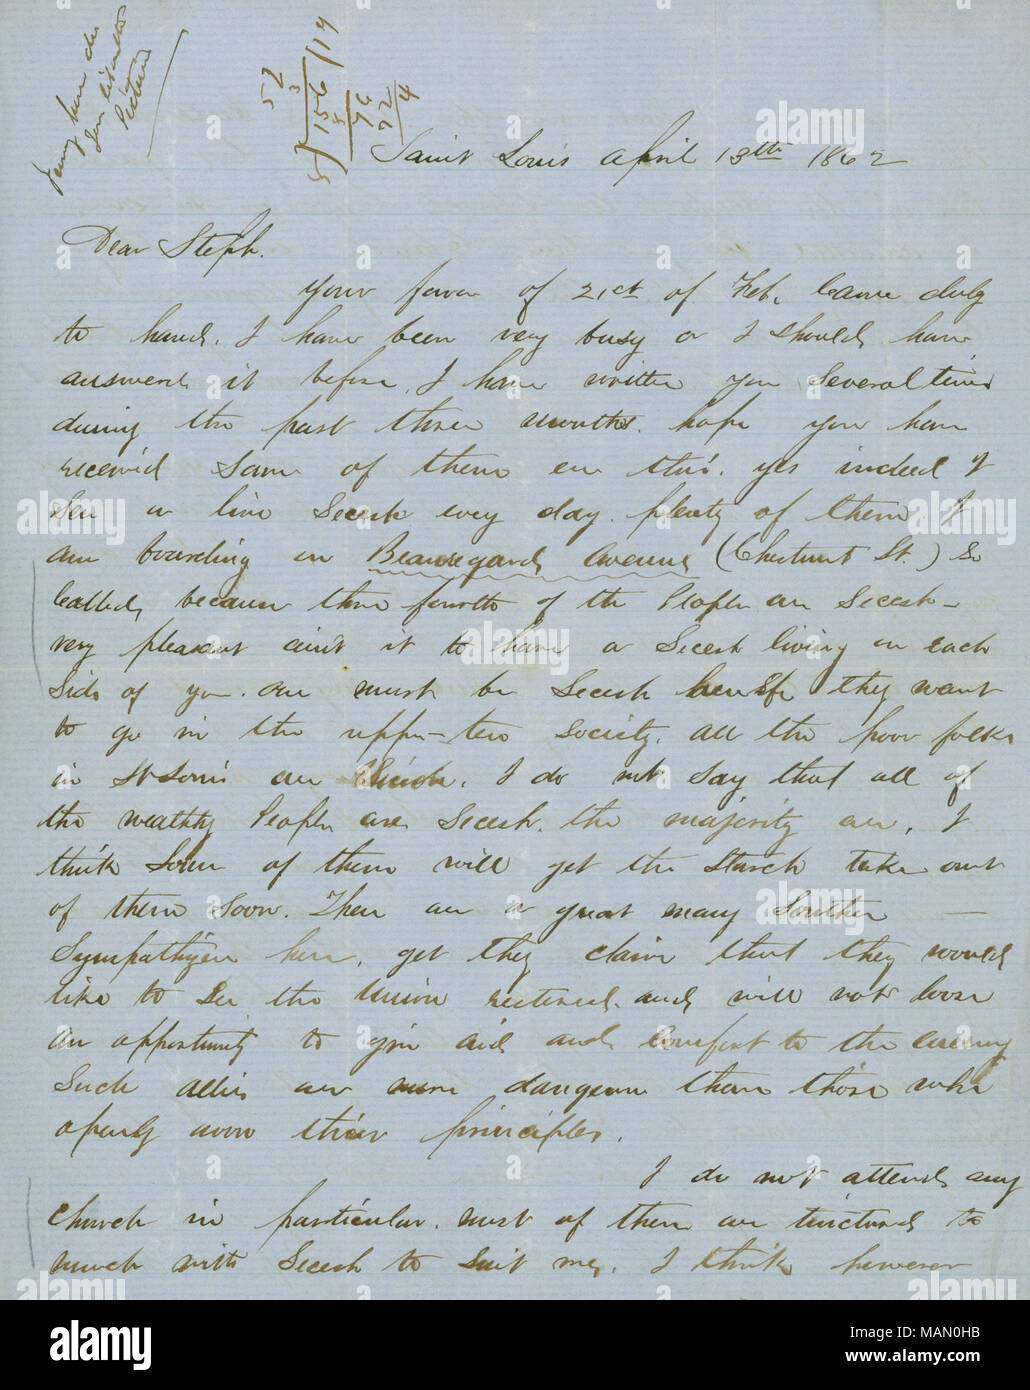 Jenny how do
you like the
picture
52
3
5)156/19
5
96
92/4
Saint Louis April 13th 1862
Dear Steph.
Your favor of 21st of Feb. Came duly
to hand. I have been very busy or I should have
answered it before. I have written you several times
during the past three months. hope you have
receiv'd some of them ere this. yes indeed I
See a live Secesh every day. plenty of them I
am boarding on Beauregards Avenue (Chestnut St.) So
Called, because three fourths of the People are Secesh -
very pleasant aint it to have a Secesh living on each
side of you. one must be Secesh if they want
to go in the upper-ten Society. all the poor folks
in St Louis are Union. I do not say that all of
the wealthy People are Secesh. the majority are. I
think some of them will get the starch taken out
of them soon. There are a great many Southern
Sympathizers here. yet they claim that they would
like to See the Union restored and will not loose
an opportunity to give aid and comfort to the Enemy
Such allies are more dangerous then those who
openly avow their principles.
I do not attend any
Church in particular. most of them are tinctured to
much with Secesh to Suit me. I think however
alamy
Image ID: MAN0HB
www.alamy.com